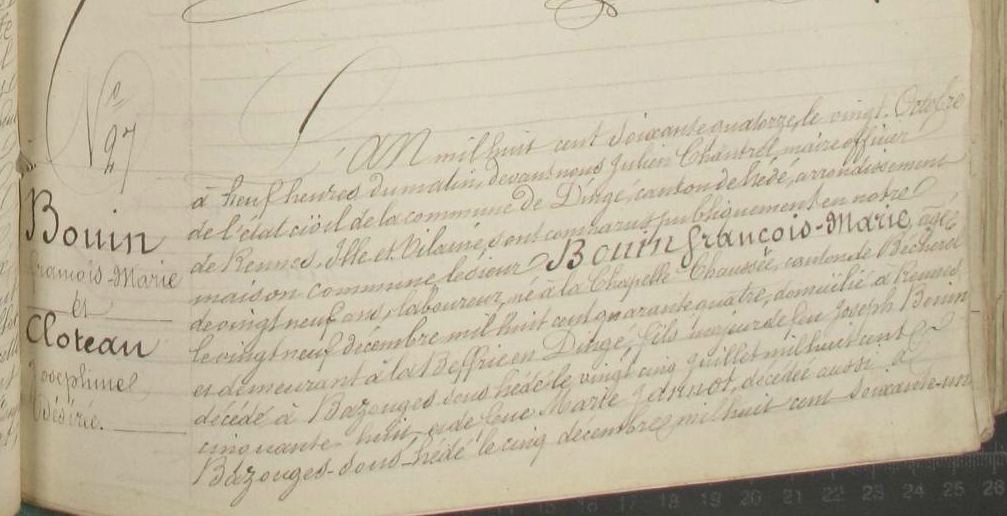 No
27
Bouin
François-Marie
et
Cloteau
Josephine
Désirée.
L'AN mil huit cent soixante quatorze, le vingt Octobre
à neuf heures du matin, devant nous Julien Chantrel maire officier
de l'état civil de la commune de Dingé, canton de hédé, arrondissement
de Rennes, Ille et Vilaine, sont comparus publiquement en notre
maison commune le sieur Bouin françois-Marie, âgé
de vingt neuf ans, laboureur, né à la Chapelle-Chaussée, canton de Bécherel
le vingt neuf décembre mil huit cent quarante quatre, domicilié à Rennes
et demeurant à la Beffrie en Dingé; fils majeur de feu Joseph Bouin
décédé à Bazouges-sous hédé le vingt cinq Juillet mil huit cent
cinquante-huit et de feue Marie Jannot, décédée aussi à
Bazouges-sous-hédé le cinq décembre mil huit cent soixante-un